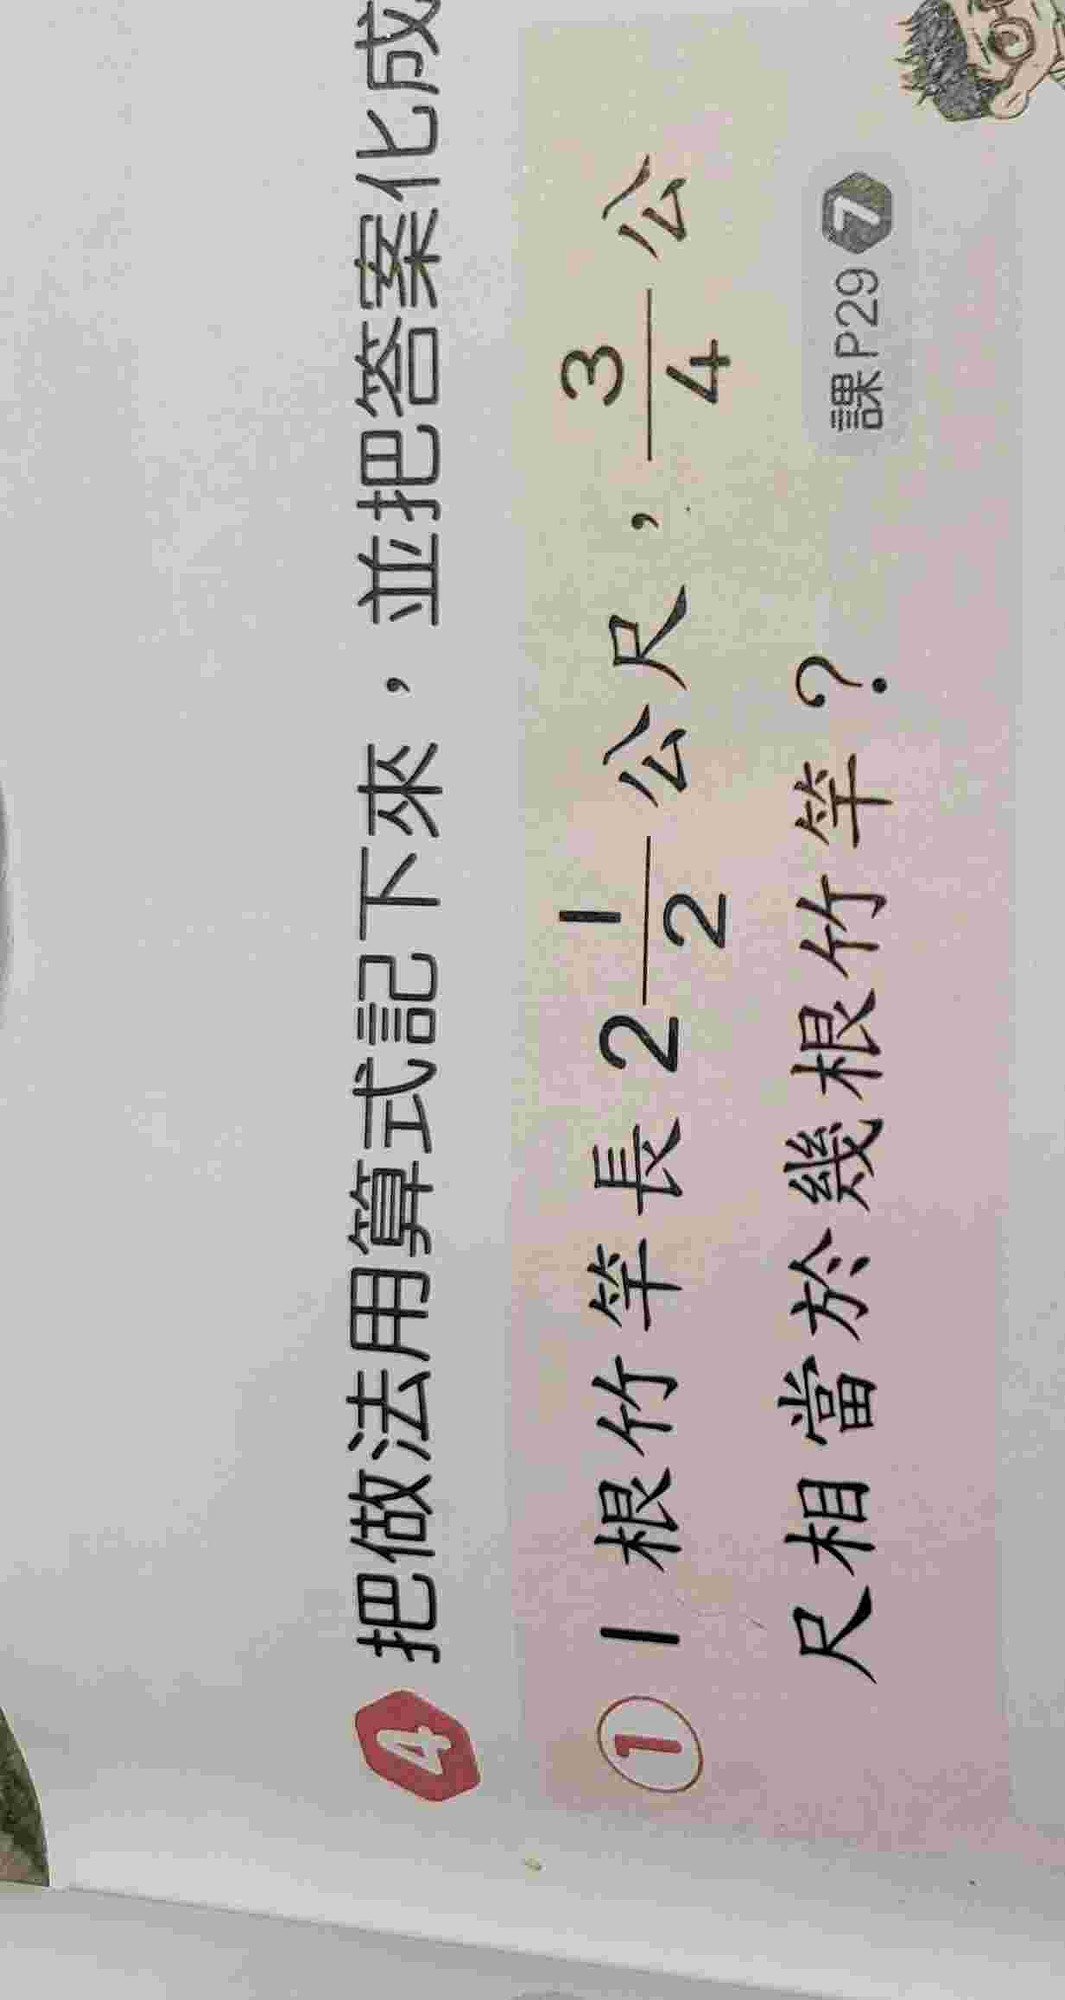 4 把做法用算式記下來，並把答案化成
① 1根竹竿長2 1/2 公尺，3/4 公
尺相當於幾根竹竿？
課P29 7